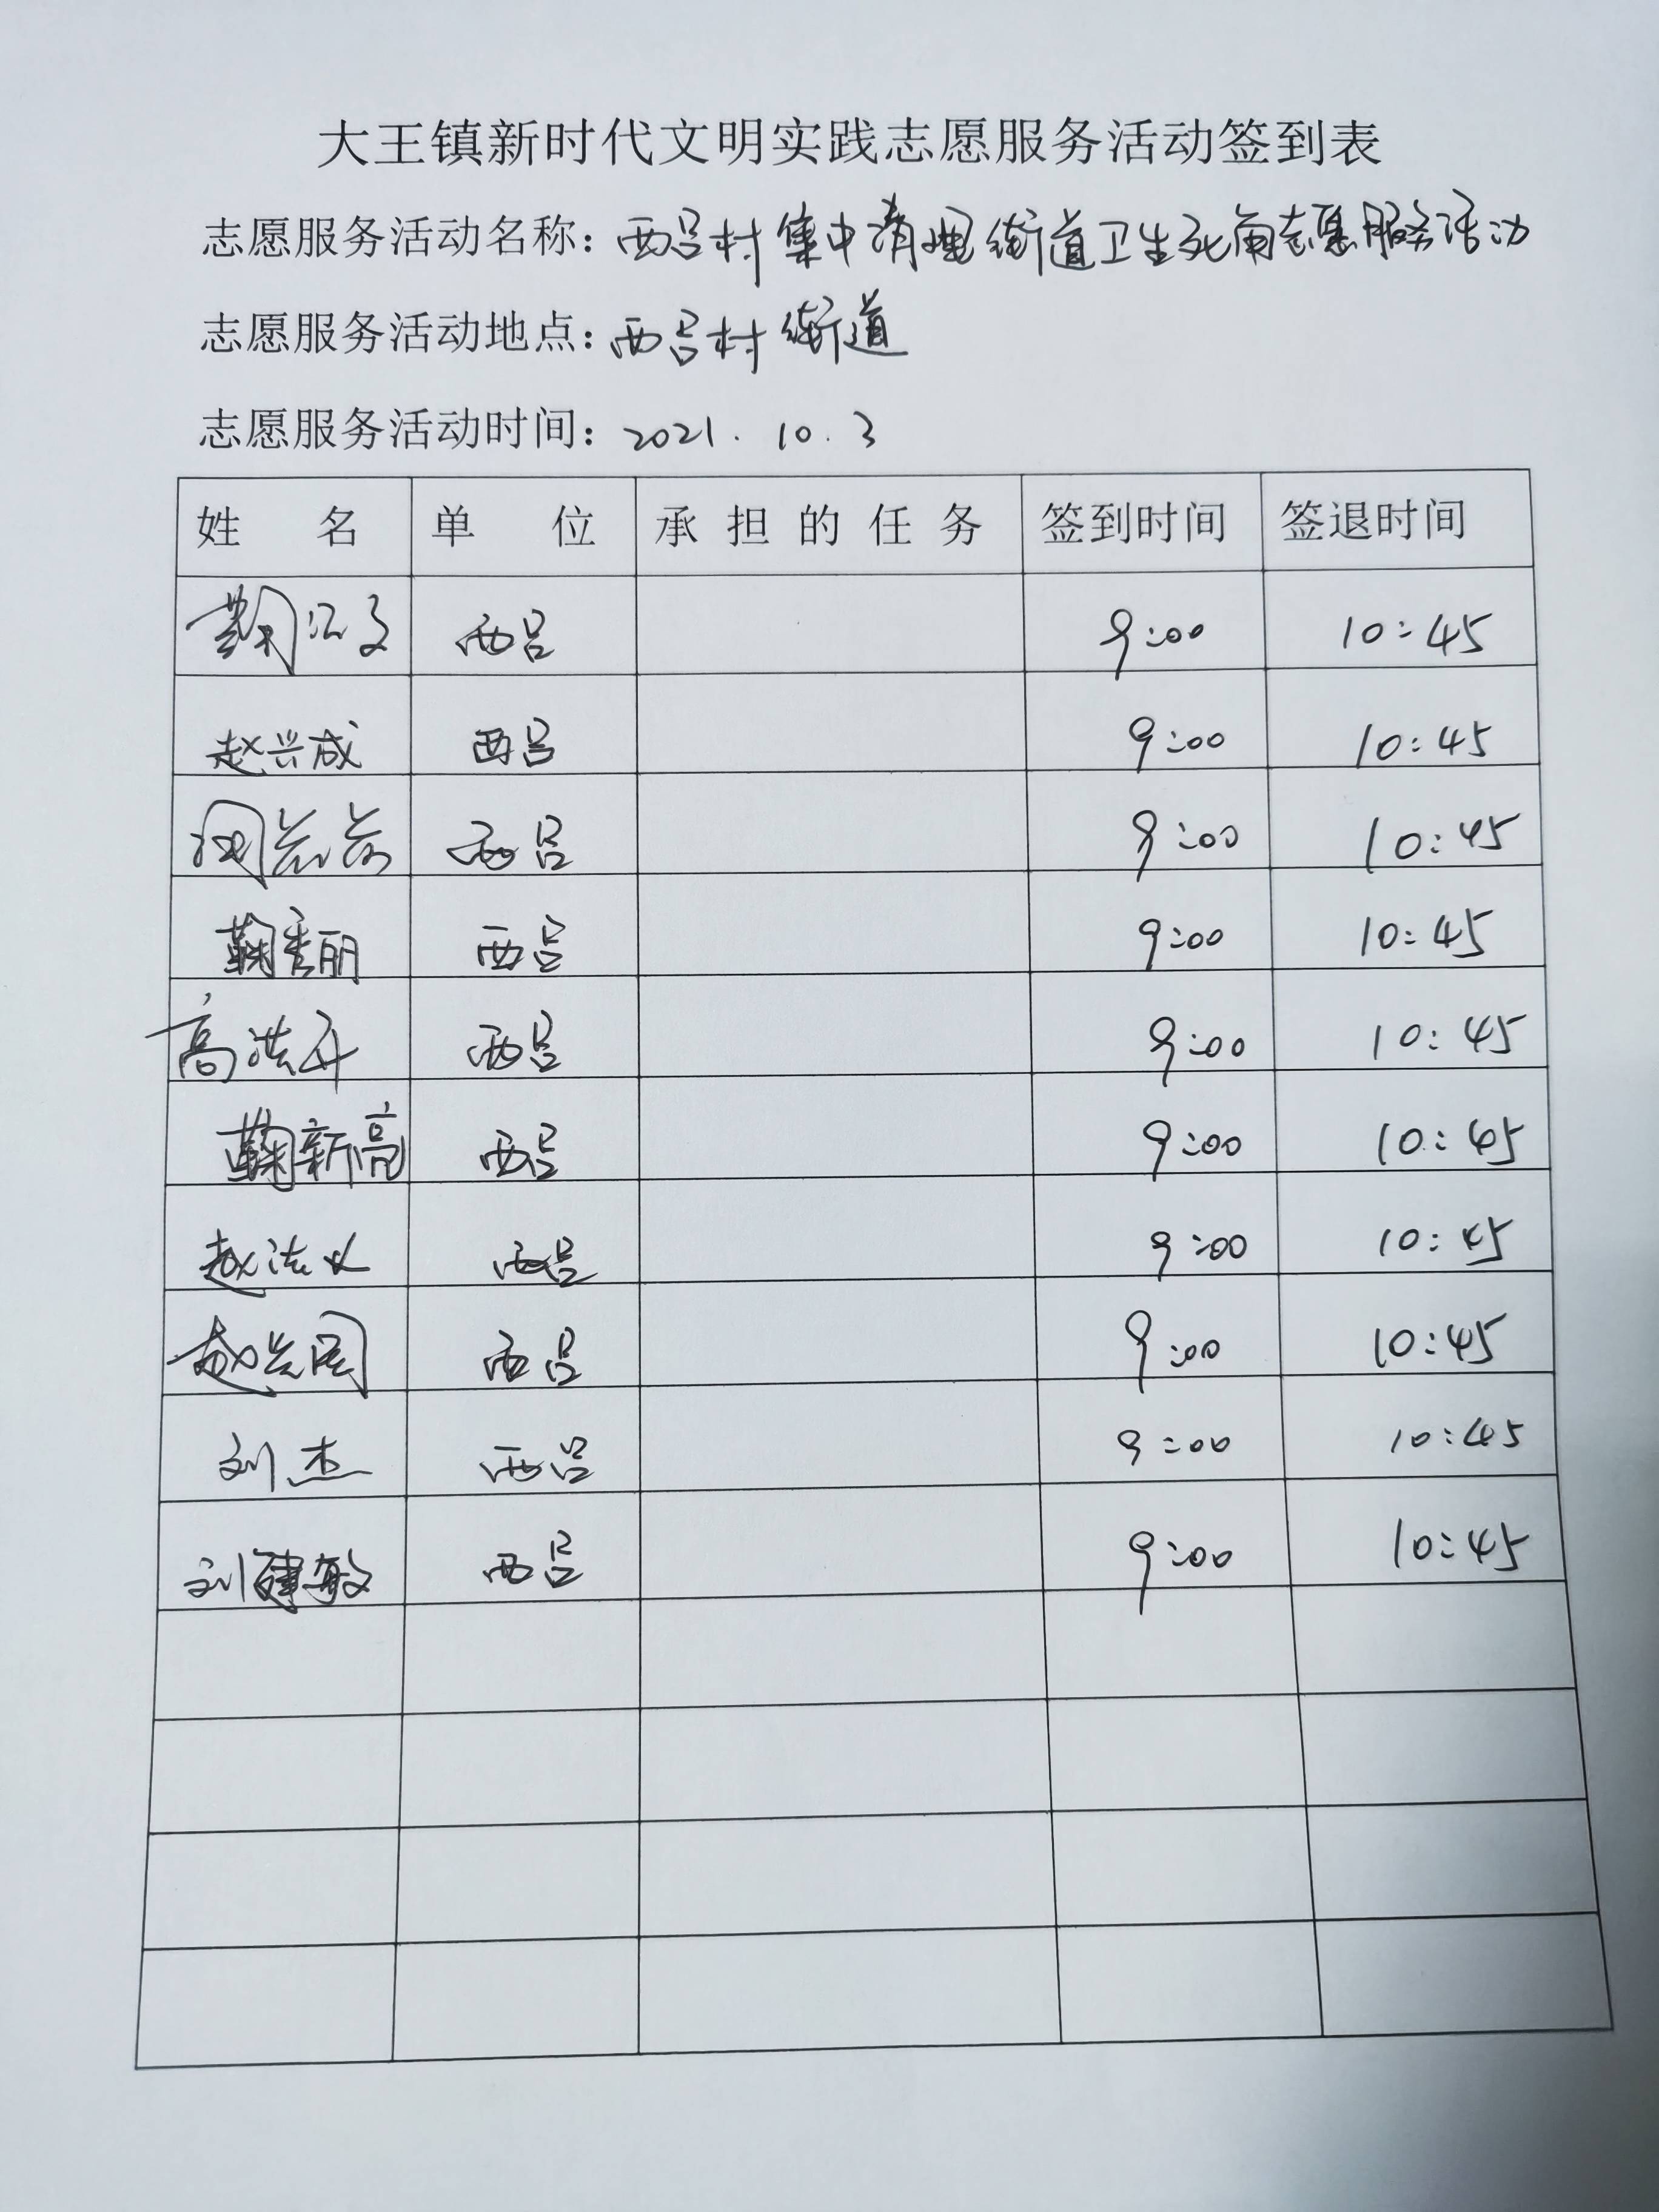 大王镇新时代文明实践志愿服务活动签到表
志愿服务活动名称：西吕村集中清理街道卫生死角志愿服务活动
志愿服务活动地点：西吕村街道
志愿服务活动时间：2021.10.3
姓 名 单 位 承担的任务 签到时间 签退时间
鞠汉文 西吕 9:00 10:45
赵兴成 西吕 9:00 10:45
西吕 9:00 10:45
鞠秀丽 西吕 9:00 10:45
高洪升 西吕 9:00 10:45
鞠新亮 西吕 9:00 10:45
赵法义 西吕 9:00 10:45
赵兴国 西吕 9:00 10:45
刘杰 西吕 9:00 10:45
刘建敏 西吕 9:00 10:45